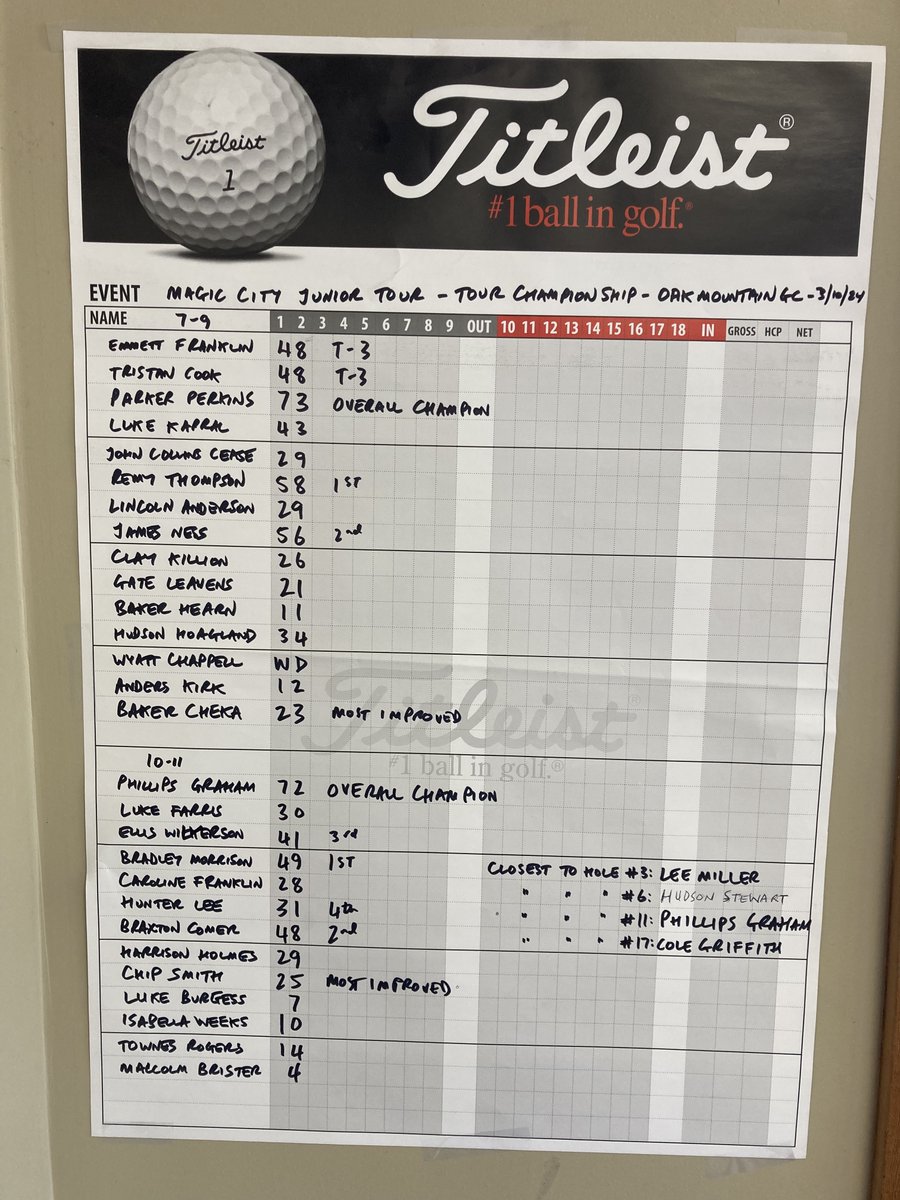 Titleist
1
Titleist®
#1 ball in golf.®
EVENT MAGIC CITY JUNIOR TOUR - TOUR CHAMPIONSHIP - OAK MOUNTAIN GC - 3/10/24
NAME 7-9 1 2 3 4 5 6 7 8 9 OUT 10 11 12 13 14 15 16 17 18 IN GROSS HCP NET
EMMETT FRANKLIN 48 T-3
TRISTAN COOK 48 T-3
PARKER PERKINS 73 OVERALL CHAMPION
LUKE KAPRAL 43
JOHN COLLINS CEASE 29
REMY THOMPSON 58 1ST
LINCOLN ANDERSON 29
JAMES NESS 56 2nd
CLAY KILLION 26
GATE LEAVENS 21
BAKER HEARN 11
HUDSON HOAGLAND 34
WYATT CHAPPELL WD
ANDERS KIRK 12
BAKER CHEKA 23 MOST IMPROVED
Titleist®
#1 ball in golf.®
10-11
PHILLIPS GRAHAM 72 OVERALL CHAMPION
LUKE FARRIS 30
ELLIS WILKERSON 41 3rd
BRADLEY MORRISON 49 1ST CLOSEST TO HOLE #3: LEE MILLER
CAROLINE FRANKLIN 28 " " " #6: HUDSON STEWART
HUNTER LEE 31 4th " " " #11: PHILLIPS GRAHAM
BRAXTON COMER 48 2nd " " " #17: COLE GRIFFITH
HARRISON HOLMES 29
CHIP SMITH 25 MOST IMPROVED
LUKE BURGESS 7
ISABELLA WEEKS 10
TOWNES ROGERS 14
MALCOLM BRISTER 4